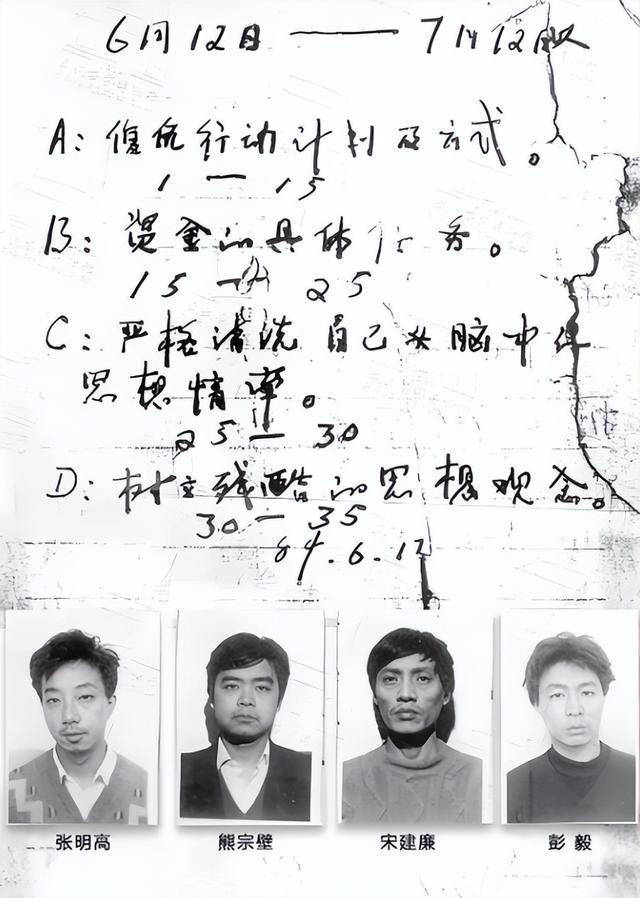 6月12日 —— 7月12日
A：復仇行动计划及方式。
1 — 15
B：资金的具体任务。
15 — 25
C：严格清洗自己头脑中
思想情
25 — 30
D：树立残酷的思想观念。
30 — 35
84.6.12
张明高 熊宗壁 宋建廉 彭毅